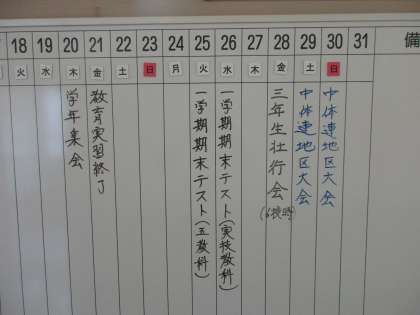 18 19 20 21 22 23 24 25 26 27 28 29 30 31 備
火 水 木 金 土 日 月 火 水 木 金 土 日
学年集会
教育実習終了
一学期期末テスト(五教科)
一学期期末テスト(実技教科)
三年生壮行会
(6校時)
中体連地区大会
中体連地区大会